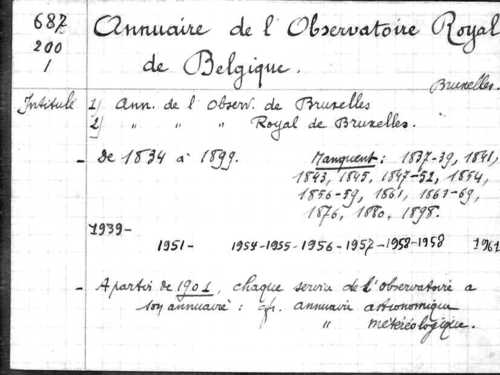 687
200
1
Annuaire de l'Observatoire Royal
de Belgique.
Bruxelles.
Intitulé 1) Ann. de l'Observ. de Bruxelles
2) " " " Royal de Bruxelles.
- De 1834 à 1899. Manquent : 1837-39, 1841,
1843, 1845, 1847-52, 1854,
1856-59, 1861, 1863-69,
1876, 1880, 1898.
1939-
1951- 1954-1955-1956-1957-1958-1958 1961
- A partir de 1901, chaque service de l'observatoire a
son annuaire : cfr. annuaire astronomique
" météréologique.